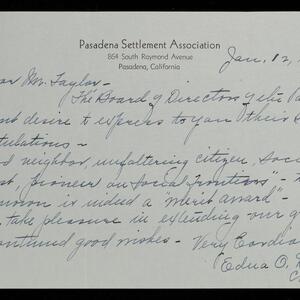 Pasadena Settlement Association
864 South Raymond Avenue
Pasadena, California
Jan. 12,
Mr. Taylor-
The Board of Directors of the
desire to express to you their
tulations-
neighbor, unfaltering citizen,
pioneer on social frontiers" -
is indeed a merit award" -
take pleasure in extending our
continued good wishes - Very
Edna O.